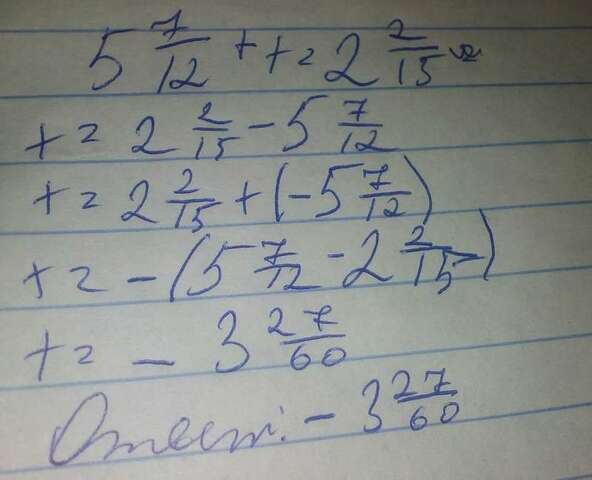 5 7/12 + t = 2 2/15
t = 2 2/15 - 5 7/12
t = 2 2/15 + (-5 7/12)
t = - (5 7/12 - 2 2/15)
t = - 3 27/60
Ответ: - 3 27/60